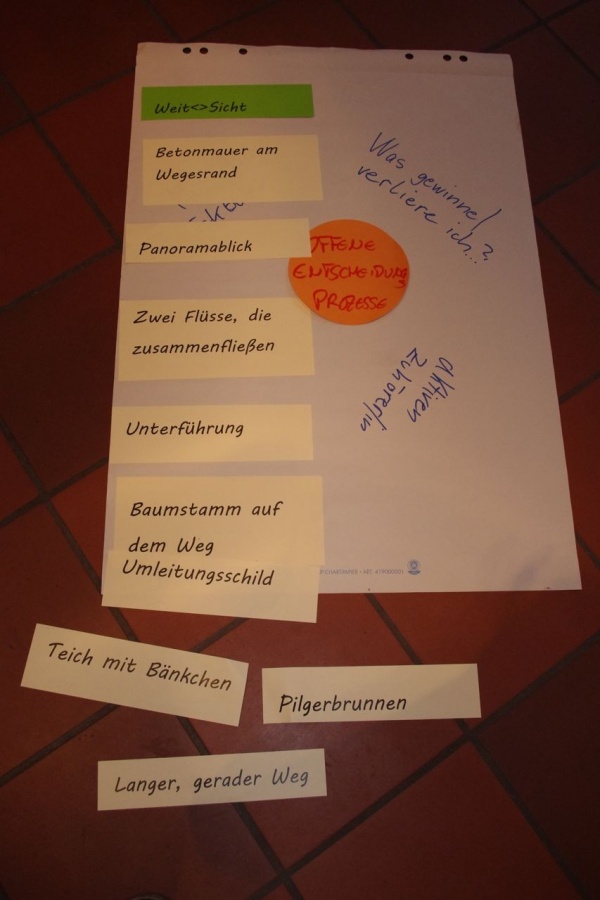 Weit<>Sicht
Betonmauer am
Wegesrand
Panoramablick
Zwei Flüsse, die
zusammenfließen
Unterführung
Baumstamm auf
dem Weg
Umleitungsschild
Teich mit Bänkchen
Pilgerbrunnen
Langer, gerader Weg
Was gewinne/
verliere ich...?
OFFENE
ENTSCHEIDUNGS
PROZESSE
aktiven
Zuhörer/in